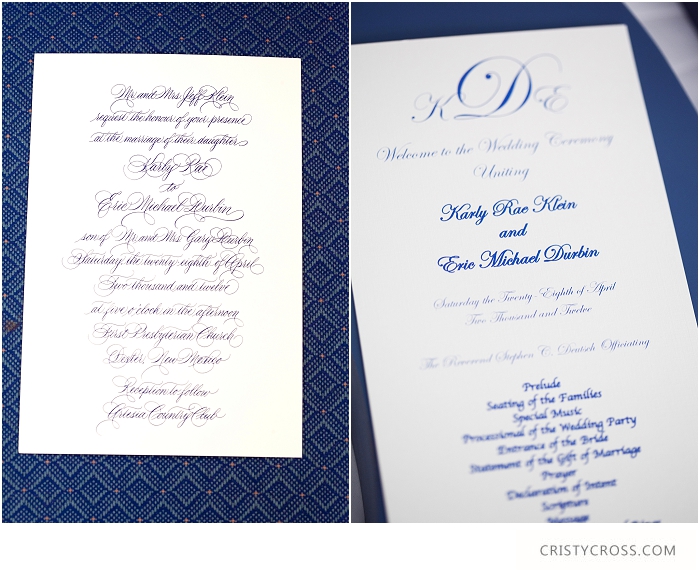 Mr. and Mrs. Jeff Klein
request the honour of your presence
at the marriage of their daughter
Karly Rae
to
Eric Michael Durbin
son of Mr. and Mrs. Gary Durbin
Saturday the twenty-eighth of April
Two thousand and twelve
at five o'clock in the afternoon
First Presbyterian Church
Dexter, New Mexico
Reception to follow
Artesia Country Club
K D E
Welcome to the Wedding Ceremony
Uniting
Karly Rae Klein
and
Eric Michael Durbin
Saturday the Twenty-Eighth of April
Two Thousand and Twelve
The Reverend Stephen C. Deutsch Officiating
Prelude
Seating of the Families
Special Music
Processional of the Wedding Party
Entrance of the Bride
Statement of the Gift of Marriage
Prayer
Declaration of Intent
Scripture
Message
CRISTYCROSS.COM